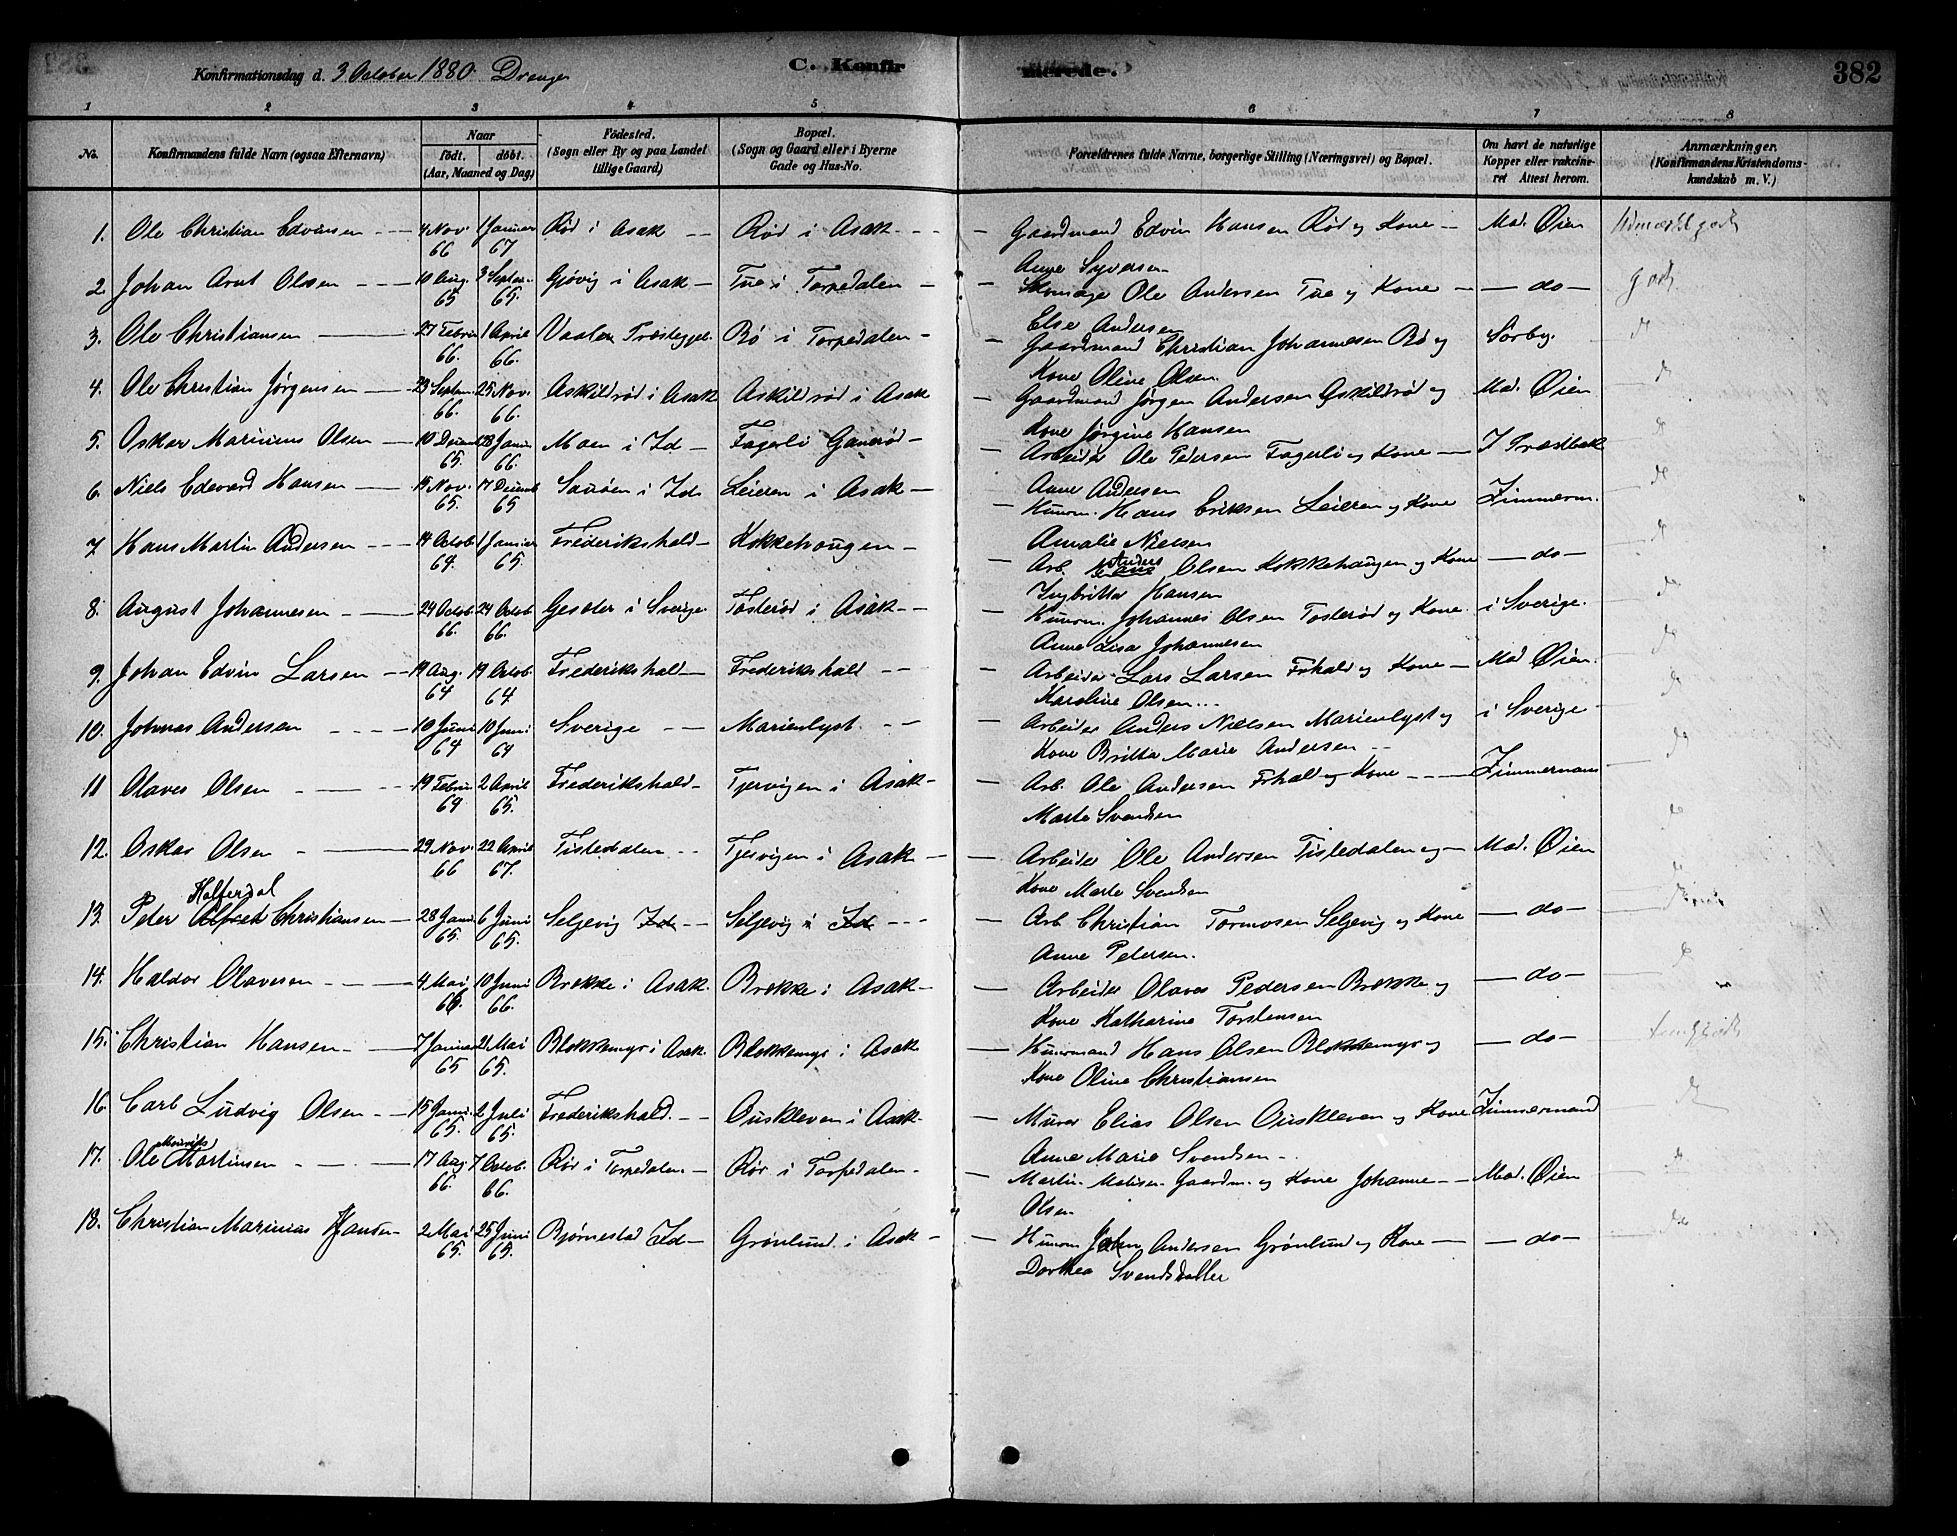 Konfirmationsdag d. 3 October 1880. Drenge
C. Konfirmerede.
382
1 2 3 4 5 6 7 8
No.
Konfirmandens fulde Navn (ogsaa Efternavn)
Naar
født. døbt.
(Aar, Maaned og Dag)
Fødested.
(Sogn eller By og paa Landet
tillige Gaard)
Bopæl.
(Sogn og Gaard eller i Byerne
Gade og Hus-No.
Forældrenes fulde Navne, borgerlige Stilling (Næringsvei) og Bopæl.
Om havt de naturlige
Kopper eller vakcine-
ret Attest herom.
Anmærkninger.
(Konfirmandens Kristendoms-
kundskab m. V.)
1. Ole Christian Edvinsen 4 Nov. 66 1 Januar 67 Rød i Asak Rød i Asak Gaardmand Edvin Hansen Rød og Kone Mad. Øien Udmærket godt
Anne Syversen
2. Johan Arnt Olsen 10 Aug. 65 3 Septem. 65. Gjøvig i Asak Tue i Torpedalen Skomager Ole Andersen Tue og Kone do godt
Else Andersen
3. Ole Christiansen 27 Februar 66. 1 April 66. Vaaler Præstegjel. Rø i Torpedalen Gaardmand Christian Johannesen Rø og Sørby. d
Kone Oline Olsen
4. Ole Christian Jørgensen 23 Septem. 66. 25 Nov. 66. Askildrød i Asak Askildrød i Asak Gaardmand Jørgen Andersen Askildrød og Mad. Øien d
Kone Jørgine Hansen
5. Oskar Marinius Olsen 10 Decemb 65. 28 Janu. 66. Moen i Id Fagerli Gamrød Arbeider Ole Pedersen Fagerli og Kone d
Anne Andersen
6. Niels Edevard Hansen Nov. 65. 17 Decemb 65 i Id Leieren i Asak Husm. Hans Eriksen Leieren og Kone Zimmerm. d
Amalie Nielsen
7. Hans Martin Andersen 14 Octob 64. 1 Januar 65. Frederikshald Kokkehaugen Arb. Anders Olsen Kokkehaugen og Kone do d
Ingbritta Hansen
8. August Johannesen 24 Octob. 66. 24 Octob 66. i Sverige. Tosterød i Asak Husm. Johannes Olsen Tosterød og Kone i Sverige. d
Anna Lisa Johannesen
9. Johan Edvin Larsen 19 Aug. 64 19 Octob. 64 Frederikshald Frederikshald Arbeider Lars Larsen Frhald og Kone Mad. Øien. d
Karoline Olsen
10. Johnas Andersen 10 Juni 64 10 Juni 64 Sverige Marienlyst Arbeider Anders Nielsen Marienlyst og i Sverige d
Kone Britta Marie Andersen
11 Olaves Olsen 19 Februa 64 2 April 65. Frederikshald Tjervigen i Asak Arb. Ole Andersen Frhald og Kone Zimmermans d
Marte Svendsen
12. Oskar Olsen 29 Nov. 66 22 April 67. Tistedalen Tjervigen i Asak Arbeider Ole Andersen Tistedalen og Mad. Øien d
Kone Marte Svendsen
13. Peter Alfred Christiansen 28 Janu. 65. 6 Juni 65. Seljevig Id Seljevig i Id Arb. Christian Tormosen Seljevig og Kone do
Anne Petersen.
14. Haldor Olavesen 4 Mai 66 10 Juni 66. Brekke i Asak. Brekke i Asak Arbeider Olaves Pedersen Brekke og do d
Kone Katharine Torstensen
15. Christian Hansen 7 Januar 65 21 Mai 65. Blokkemyr i Asak. Blokkemyr i Asak Husmand Hans Olsen Blokkemyr og do
Kone Oline Christiansen
16. Carl Ludvig Olsen 15 Janu. 65. 2 Juli 65. Frederikshald. Ouskleven i Asak Murer Elias Olsen Ouskleven og Kone Zimmermand d
Anne Marie Svendsen
17. Ole Martinsen 17 Aug 66. 7 Octob. 66. Rør i Torpedalen Rør i Torpedalen Martin Matisen Gaardm. og Kone Johanne Mad. Øien d
Olsen
18. Christian Marinius Hansen 2 Mai 65. 25 Juni 65. Bjørnestad Id Grønlund i Asak Husm John Andersen Grønlund og Kone do d
Dorthea